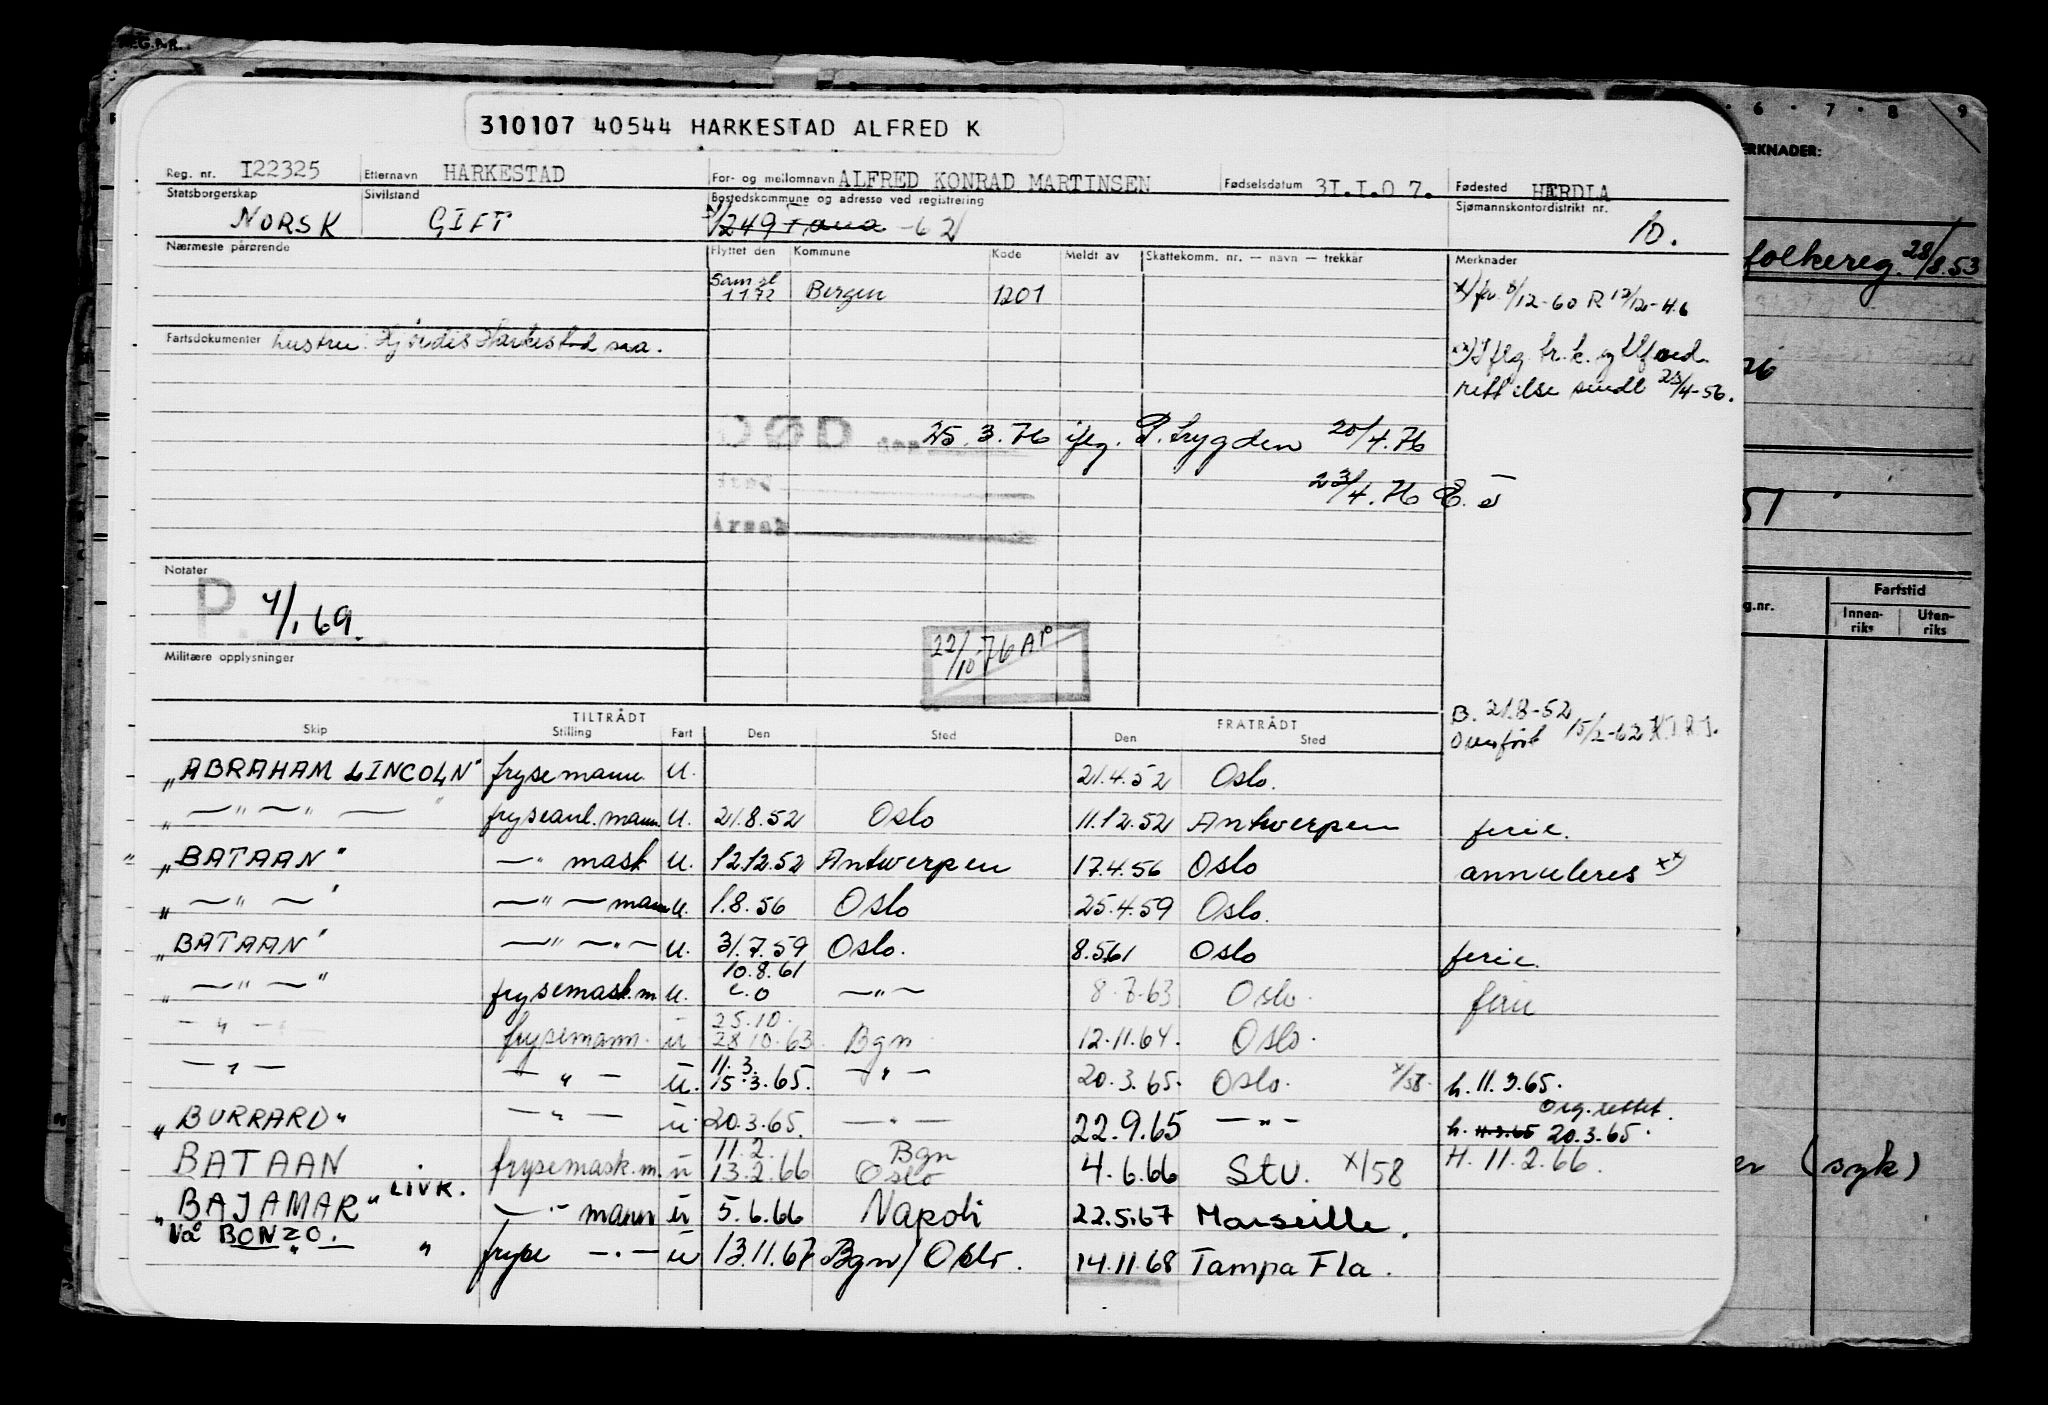 310107 40544 HARKESTAD ALFRED K
Reg. nr. I22325 Etternavn HARKESTAD For- og mellomnavn ALFRED KONRAD MARTINSEN Fødselsdatum 3I.I.0 7. Fødested HERDLA
Statsborgerskap NORSK Sivilstand GIFT Bostedskommune og adresse ved registrering 1249 -62 Sjømannskontordistrikt nr. 10.
Nærmeste pårørende Flyttet den Kommune Kode Meldt av Skattekomm. nr. — navn — trekkår Merknader
1172 Bergen 1201
12-60 R 12/12-46
Fartsdokumenter hustru: Hjørdis Harkestad saa.
rettelse sendt 23/4-56.
DØD den 25.3.76 ifg. P. trygden 20/4.76
23/4.76
Årsak
Notater
P. 4/1 69.
22/10-76
Militære opplysninger
B. 21.8-52
Overført 15/2-62
TILTRÅDT FRATRÅDT
Skip Stilling Fart Den Sted Den Sted
"ABRAHAM LINCOLN" frysemann U. 21.4.52 Oslo.
" — " — " — " fryseanl. mann U. 21.8.52 Oslo 11.12.52 Antwerpen ferie.
"BATAAN" — " mask U. 12.12.52 Antwerpen 17.4.56 Oslo annuleres xx)
" — " — " — " — mann U. 1.8.56 Oslo 25.4.59 Oslo.
"BATAAN" — " — " — U. 31.7.59 Oslo. 8.5.61 Oslo ferie.
" — " — " frysemask.m U. 10.8.61 — " — 8.7.63 Oslo. ferie
— " — frysemann. u 25.10. 28 10.63 Bgn 12.11.64. Oslo.
— " — — " — u. 11.3. 15.3.65. — " — 20.3.65. Oslo. x/58. h. 11.3.65.
Org. rettet.
"BURRARD" — " — u. 20.3.65. — " — 22.9.65 — " — h. 11.3.65 20.3.65.
BATAAN frysemask.m u 11.2. 13.2.66 Bgn Oslo 4.6.66 Stv. x/58 H. 11.2.66.
"BAJAMAR" LIVK. — " mann u 5.6.66 Napoli 22.5.67 Marseille.
Nå BONZO.
— " — " fryse — " — u 13.11.67 Bgn/Oslo. 14.11.68 Tampa Fla.
6 7 8 9
folkereg. 28/8.53
51
Fartstid
g.nr. Innen-riks Uten-riks
(syk)